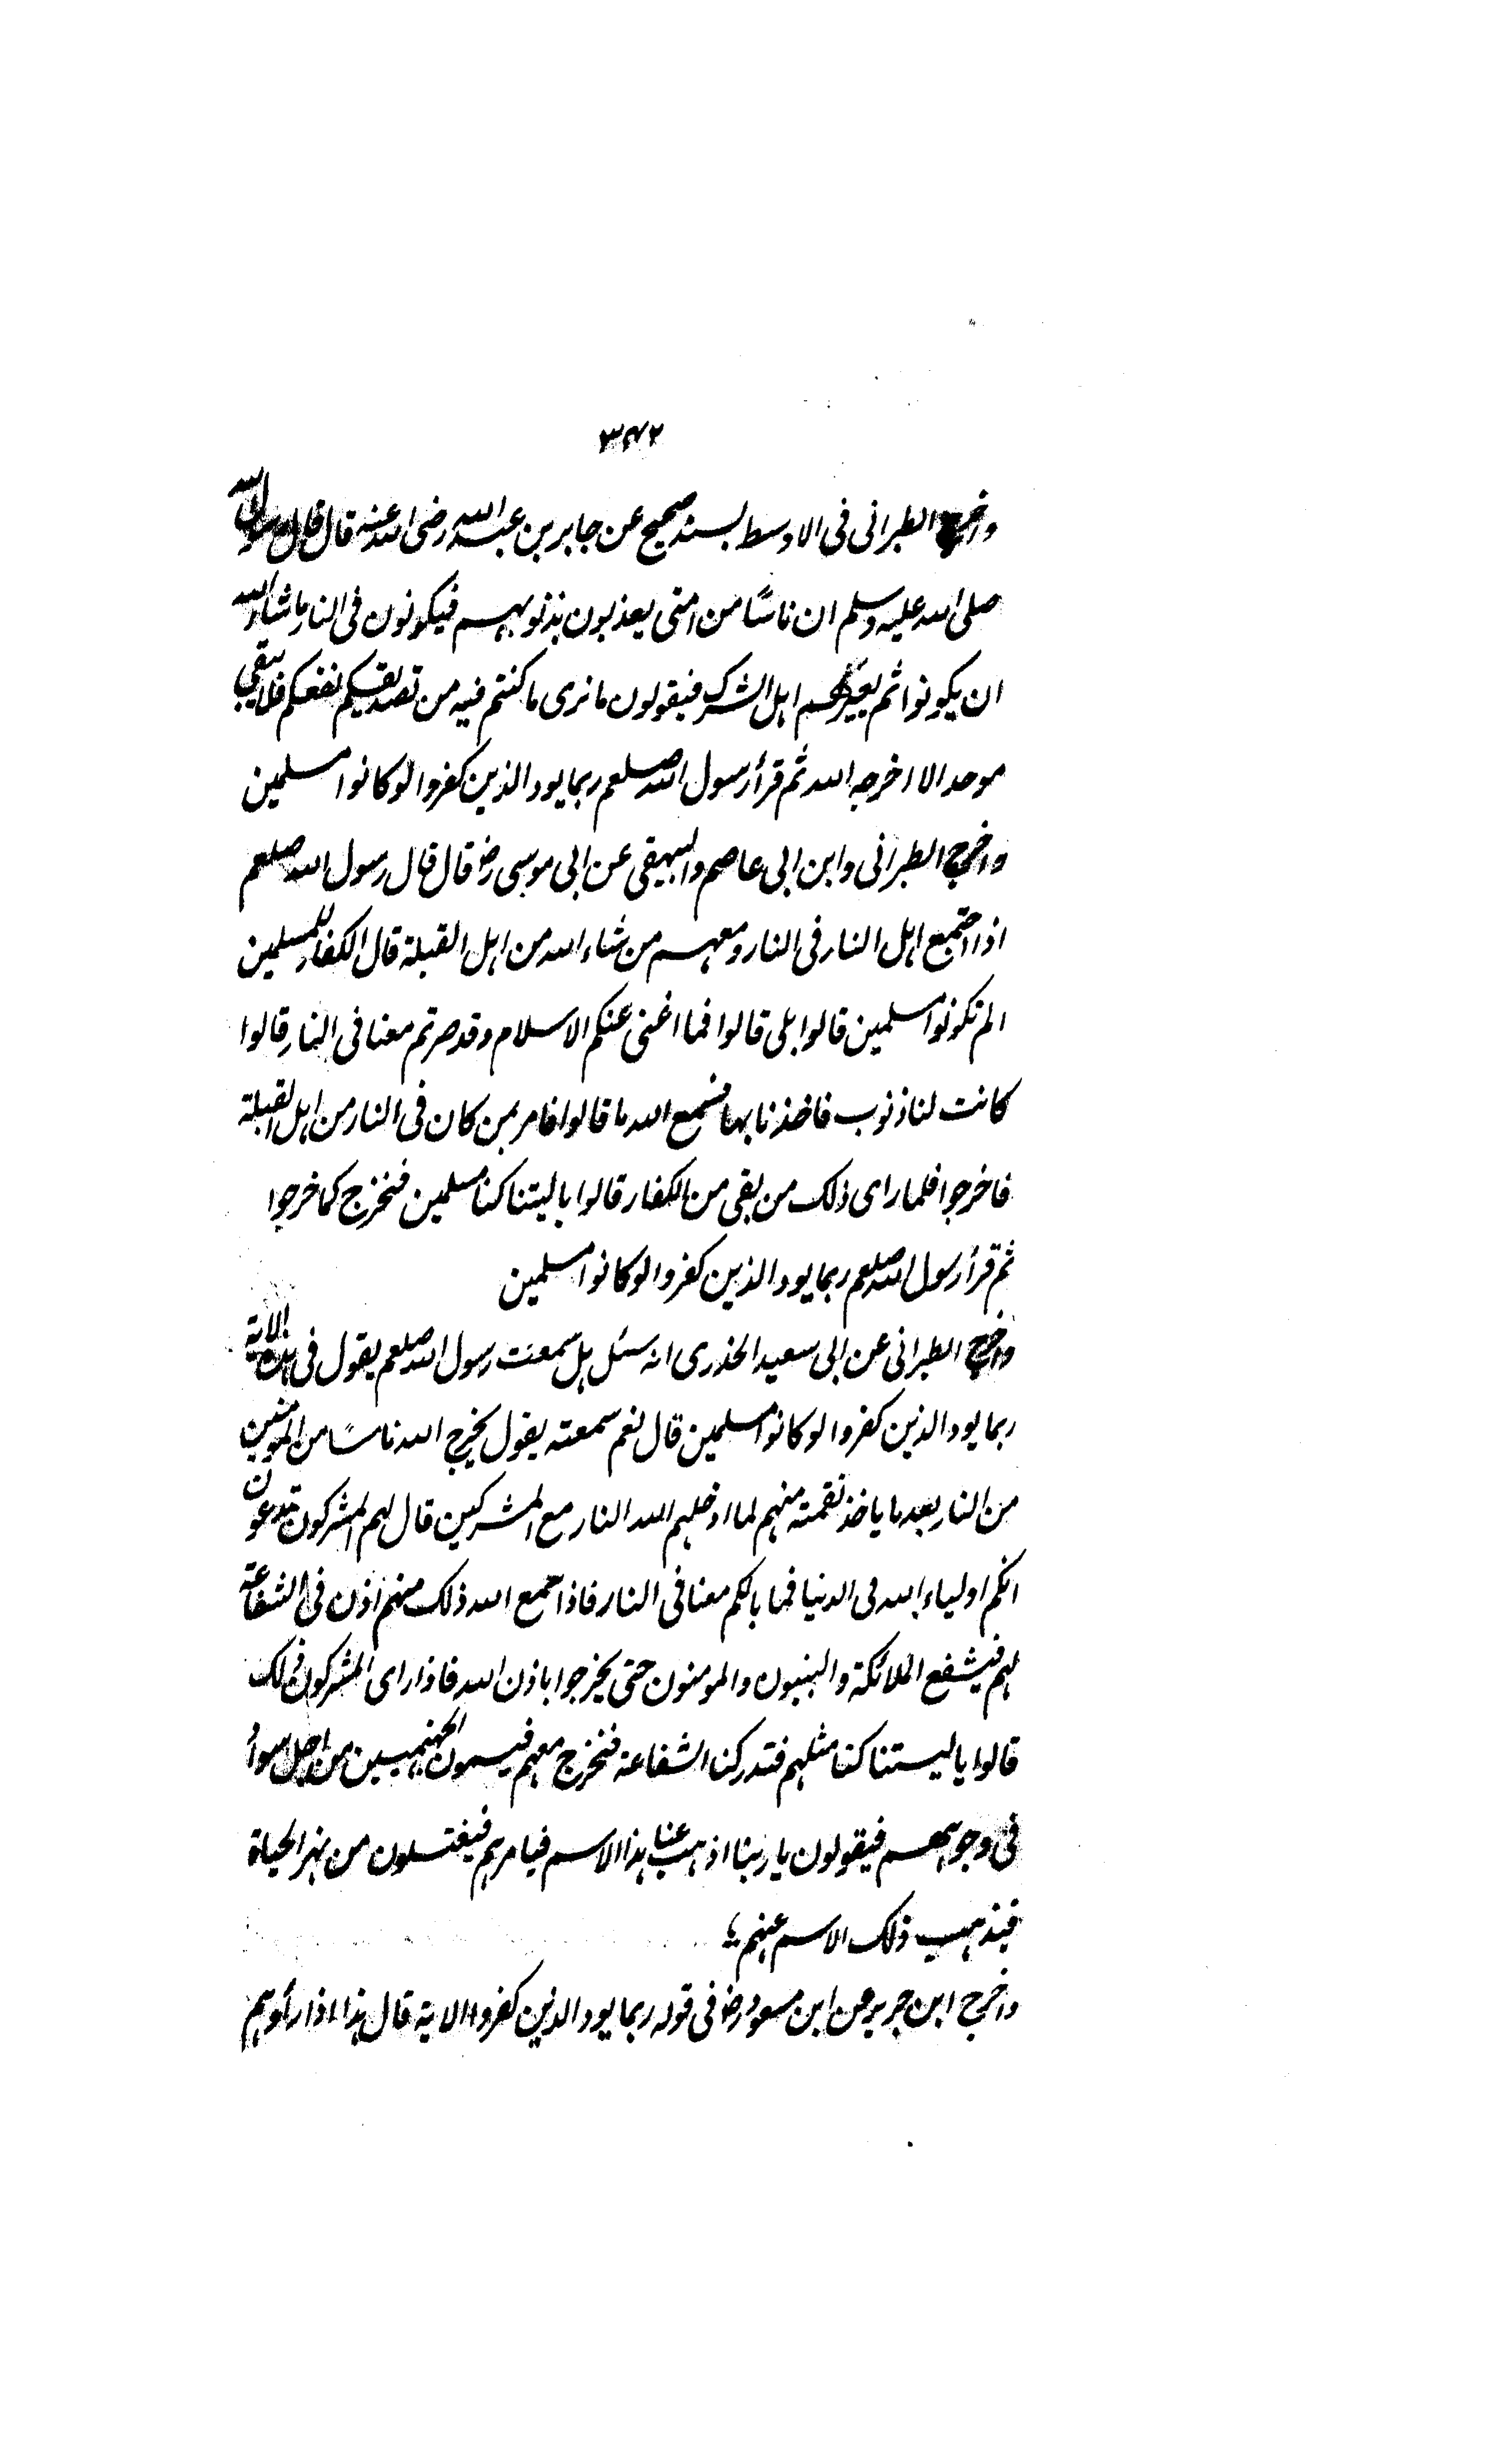 ۳۴۲
واخرج الطبرانی فی الاوسط بسند صحیح عن جابر بن عبد الله رضی الله عنہ قال قال رسول الله
صلی الله علیہ وسلم ان ناسًا من امتی یعذبون بذنوبہم فیکونون فی النار ما شاء الله
ان یکونوا ثم یعیرہم اہل الشرک فیقولون ما نری ما کنتم فیہ من تصدیقکم نفعکم فلا یبقی
موحد الا اخرجہ الله ثم قرأ رسول الله صلعم ربما یود الذین کفروا لو کانوا مسلمین
واخرج الطبرانی وابن ابی عاصم والبیہقی عن ابی موسی رض قال قال رسول الله صلعم
اذا اجتمع اہل النار فی النار ومعہم من شاء الله من اہل القبلة قال الکفار للمسلمین
الم تکونوا مسلمین قالوا بلی قالوا فما اغنی عنکم الاسلام وقد صرتم معنا فی النار قالوا
کانت لنا ذنوب فاخذنا بہا فسمع الله ما قالوا فامر بمن کان فی النار من اہل القبلة
فاخرجوا فلما رای ذلک من بقی من الکفار قالوا یا لیتنا کنا مسلمین فنخرج کما خرجوا
ثم قرأ رسول الله صلعم ربما یود الذین کفروا لو کانوا مسلمین
واخرج الطبرانی عن ابی سعید الخدری انہ سئل ہل سمعت رسول الله صلعم یقول فی ہذہ الایة
ربما یود الذین کفروا لو کانوا مسلمین قال نعم سمعتہ یقول یخرج الله ناسًا من المومنین
من النار بعد ما یاخذ نقمتہ منہم لما ادخلہم الله النار مع المشرکین قال لہم المشرکون تدعون
انکم اولیاء الله فی الدنیا فما بالکم معنا فی النار فاذا سمع الله ذلک منہم اذن فی الشفاعة
لہم فیشفع الملائکة والنبیون والمومنون حتی یخرجوا باذن الله فاذا رای المشرکون ذلک
قالوا یا لیتنا کنا مثلہم فتدرکنا الشفاعة فنخرج معہم فیسمون الجہنمیین من اجل سواد
فی وجوہہم فیقولون یا ربنا اذہب عنا ہذا الاسم فیامرہم فیغتسلون من نہر الحیاة
فیذہب ذلک الاسم عنہم
واخرج ابن جریر عن ابن مسعود رض فی قولہ ربما یود الذین کفروا الایة قال ہذا اذا رأوہم